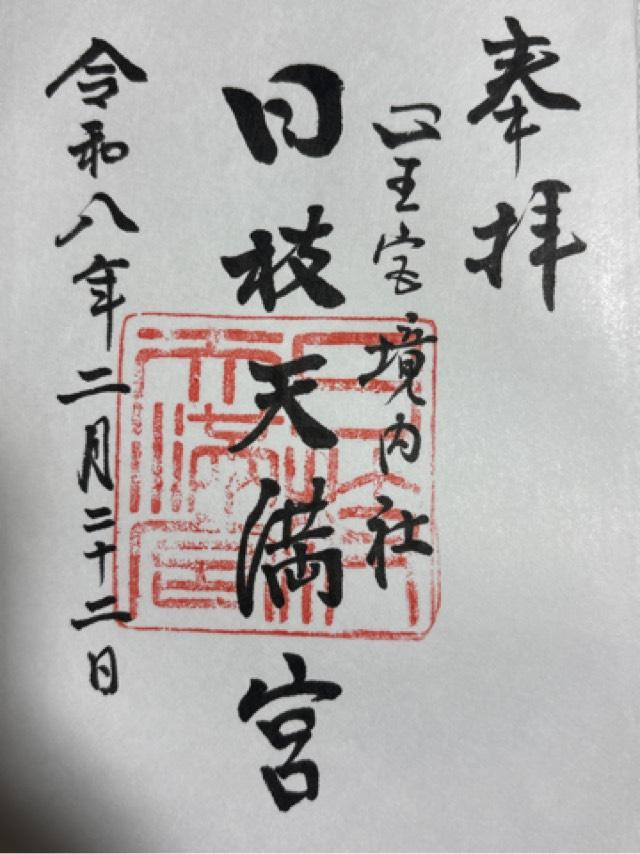 奉拝
山王宮境内社
日枝天満宮
令和八年二月二十二日